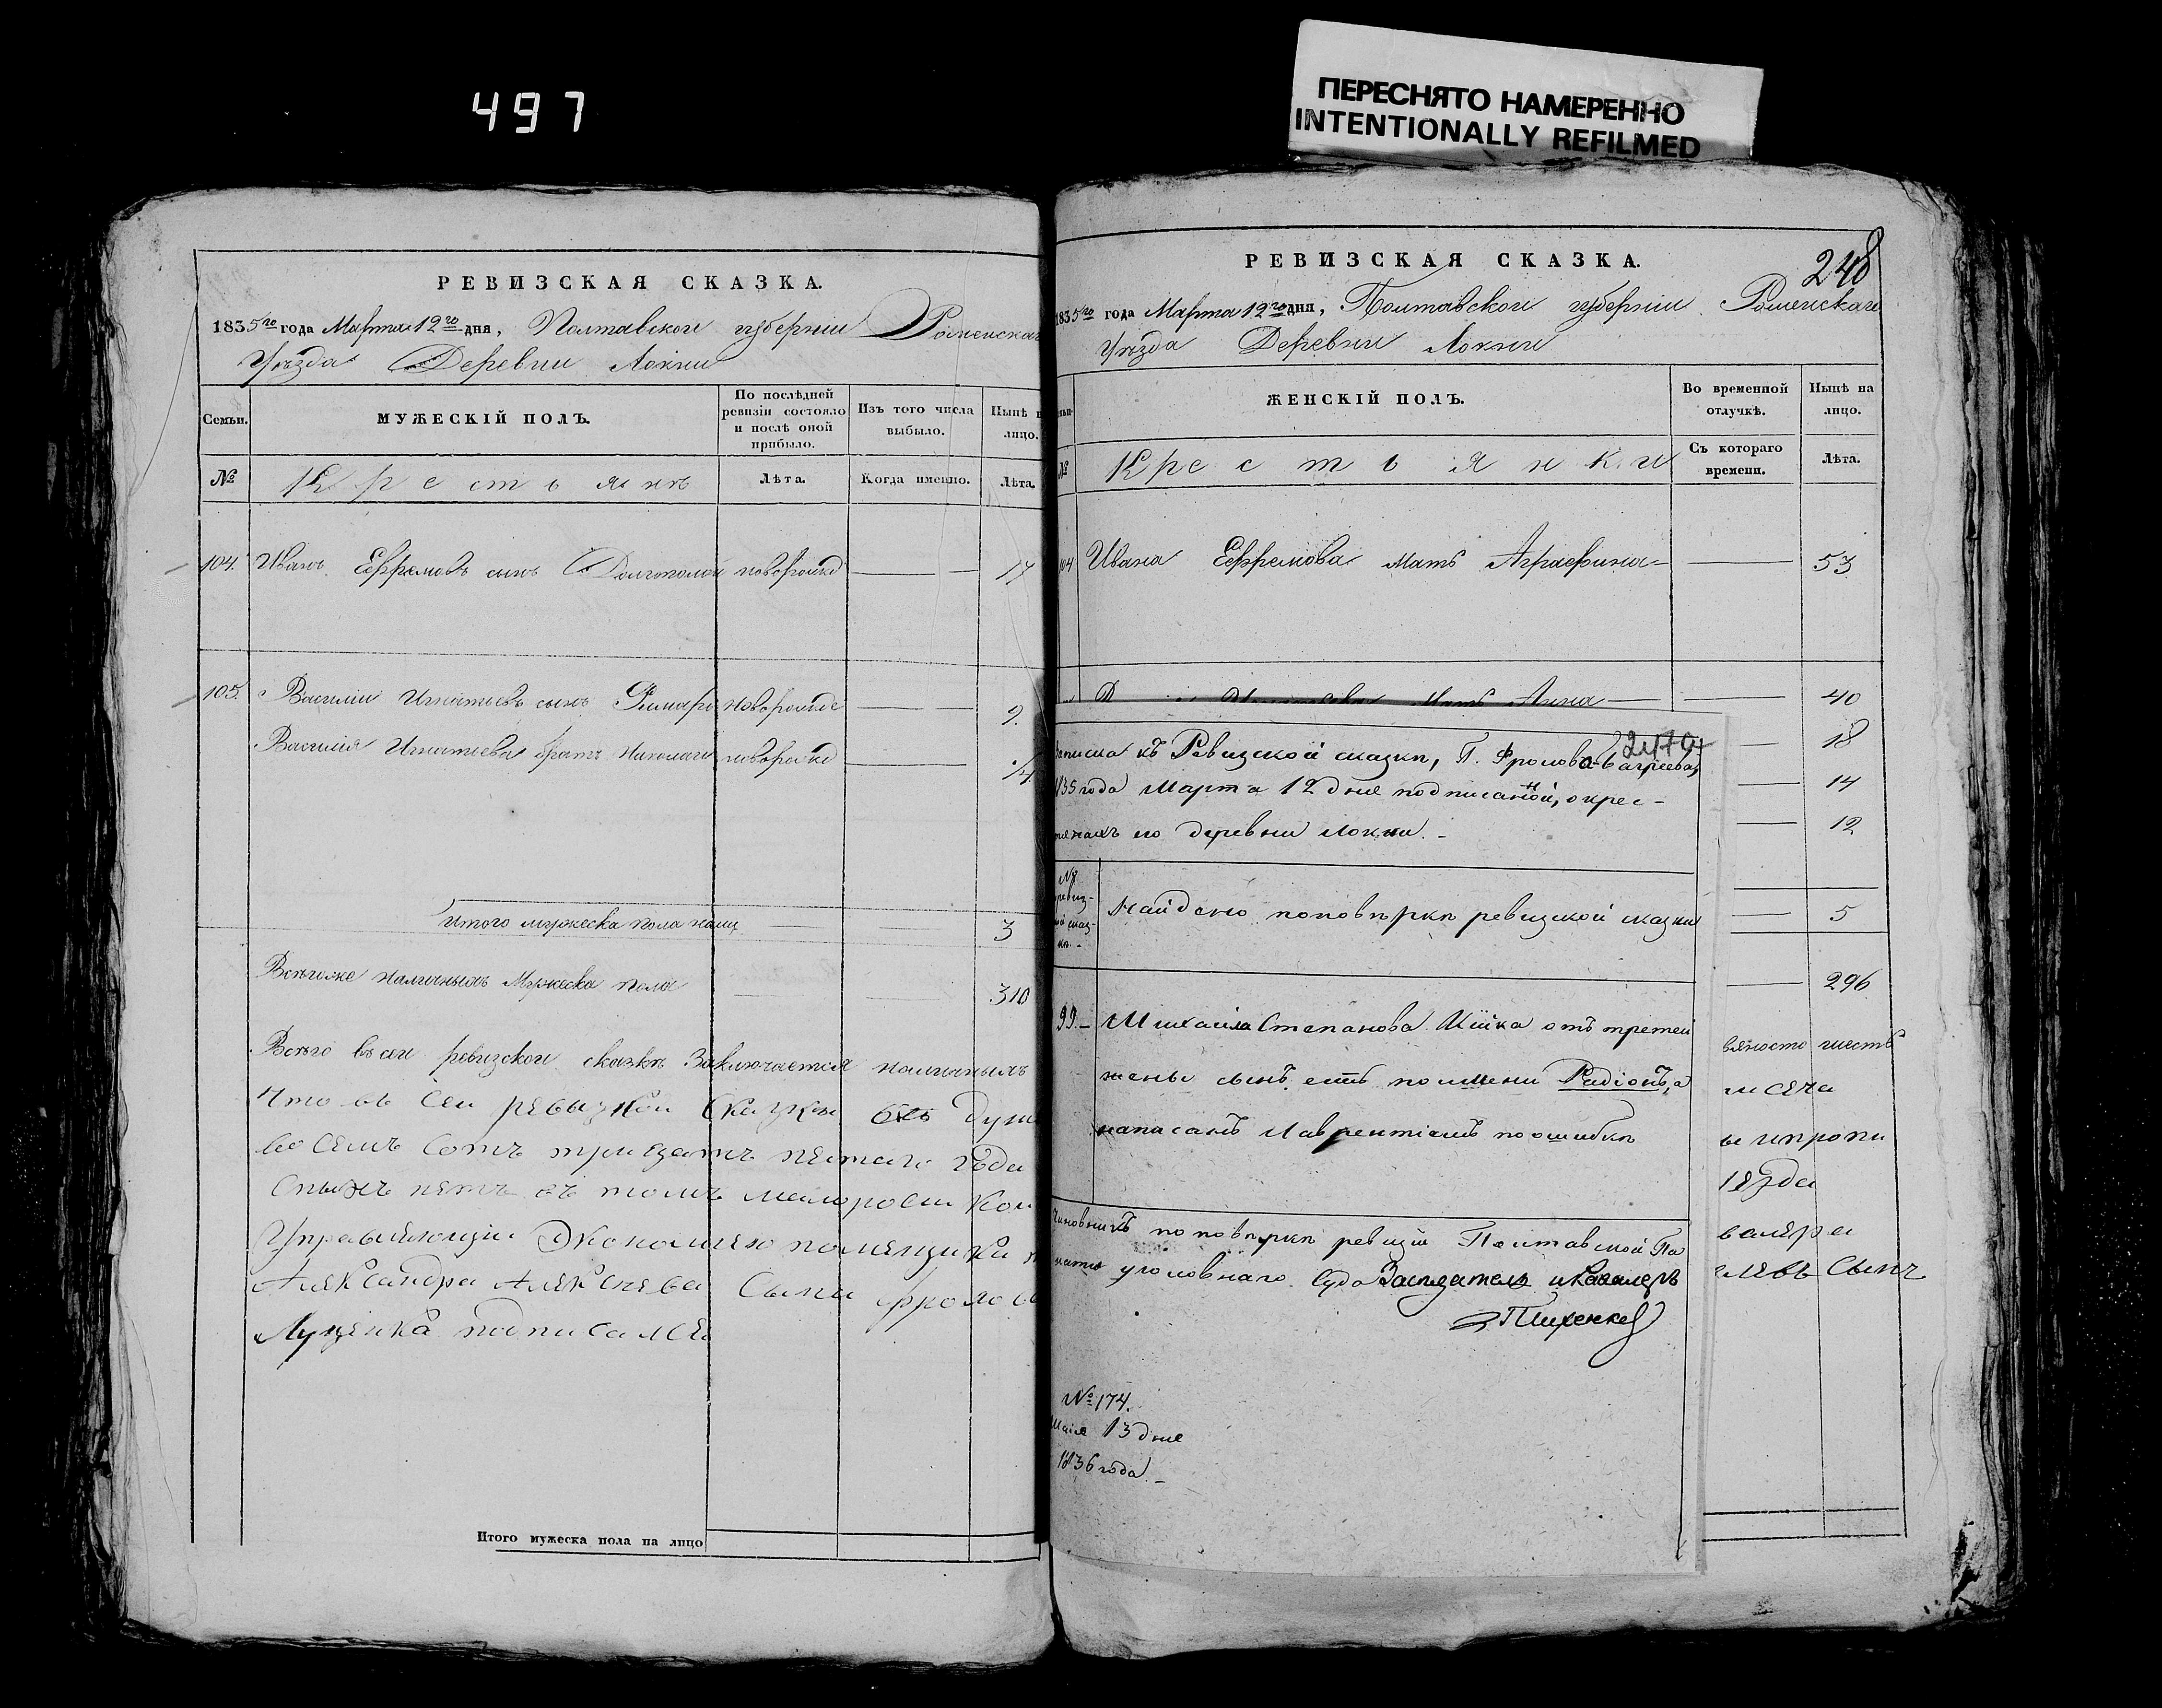 497
ПЕРЕСНЯТО НАМЕРЕННО
INTENTIONALLY REFILMED
РЕВИЗСКАЯ СКАЗКА.
1835го года Марта 12го дня, Полтавской губернии Роменскаг
Уѣзда Деревни Локни
Семьи.
МУЖЕСКІЙ ПОЛЪ.
По послѣдней ревизіи состояло и послѣ оной прибыло.
Изъ того числа выбыло.
Нынѣ н лицо.
№
Крестьянъ
Лѣта.
Когда именно.
Лѣта.
104. Иванъ Ефремовъ сынъ Долгополой новорожд 17
105. Василий Игнатьевъ сынъ новорожде 9.
Василия Игнатьева братъ Николай новорожд
Итого мужеска пола налиц 3
Всѣгоже наличныхъ Мужеска пола 310
Всѣго въ сей ревизской сказкѣ Заключается наличныхъ
Что въ Сей ревизкой Сказки всѣ душ
восемъ Сотъ тридцатъ пятаго года
томъ
Управляющій Экономією помещика
Александра Алексеева Сына фролов
Луценка подписался
Итого мужеска пола на лицо
РЕВИЗСКАЯ СКАЗКА.
248
1835го года Марта 12го дня, Полтавской губерніи Роменскаго
Уѣзда Деревни Локни
ЖЕНСКІЙ ПОЛЪ.
Во временной отлучкѣ.
Нынѣ на лицо.
№
Крестьянки
Съ котораго времени.
Лѣта.
104 Ивана Ефремова мать Аграфина 53
мать Анна 40
18
14
12
5
296
247а
записка къ Ревизской сказки, Г. Фролова-Багреева,
1835 года Марта 12 дня подписанной, о крес-
тьянахъ его деревни Локни.-
№ ревиз-
ой сказ-
ки.-
Найдено по повѣрки ревизской сказки
99.- Михаила Степанова Кійка отъ третей
жены сынъ есть по имени Радіонъ, а
написанъ Лаврентіемъ по ошибкѣ
Чиновникъ по повѣркѣ ревизіи Полтавской Па
латы уголовнаго Суда Засѣдатель и Кавалеръ
№ 174.
Маія 13 дня
1836 года.-
вяносто шесть
уезда
валера
Сынъ